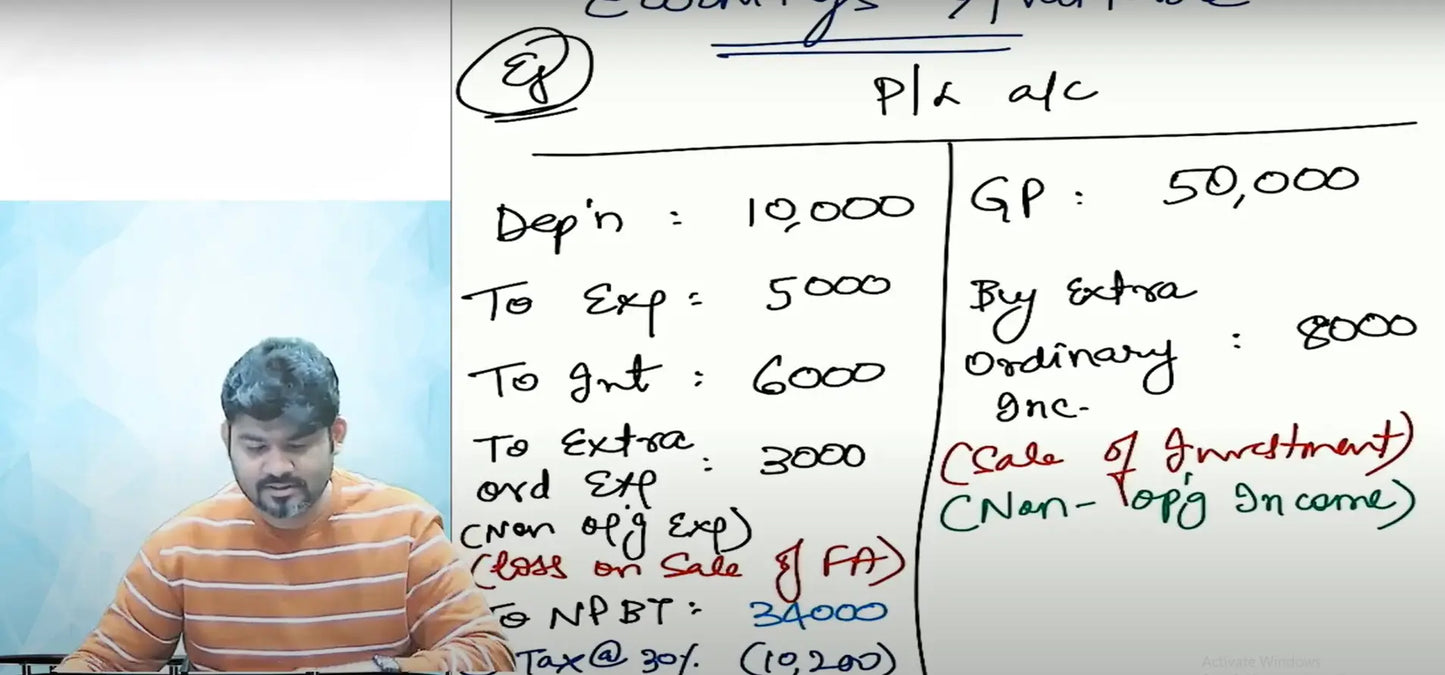 Eg
P/L a/c
Dep'n : 10,000
To Exp = 5000
To Int : 6000
To Extra
ord Exp : 3000
(Non op'g Exp)
(Loss on Sale of FA)
To NPBT : 34000
Tax @ 30% (10,200)
GP : 50,000
By Extra
Ordinary : 8000
Inc.
(Sale of Investment)
(Non-op'g Income)
Activate Windows